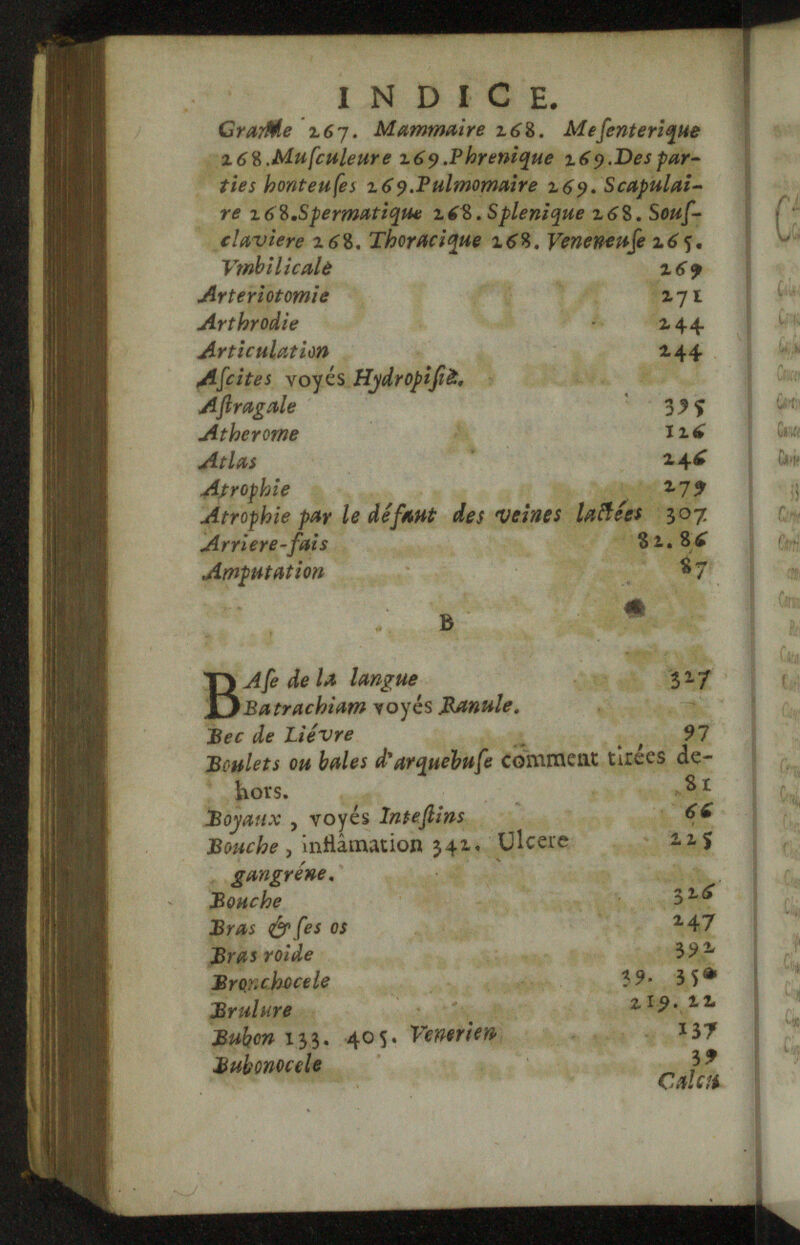 INDICE.
Graisse 267. Mammaire 268. Meſenterique
268. Muſculeure 269. Phrenique 269. Des par-
ties honteuſes 269. Pulmomaire 269. Scapulai-
re 268. Spermatique 268. Splenique 268. Souſ-
claviere 268. Thoracique 268. Veneneuſe 265.
Vmbilicale 269
Arteriotomie 271
Arthrodie 244
Articulation 244
Aſcites voyés Hydropiſie.
Aſtragale 395
Atherome 126
Atlas 246
Atrophie 279
Atrophie par le défaut des veines lactées 307
Arriere-fais 82. 86
Amputation 87
B
BAſe de la langue 327
Batrachiam voyés Ranule.
Bec de Liévre 97
Boulets ou bales d'arquebuſe comment tirées de-
hors. 81
Boyaux, voyés Inteſtins 66
Bouche, inflâmation 342. Ulcere 225
gangréne.
Bouche 326
Bras & ſes os 247
Bras roide 392
Bronchocele 39.
Brulure 219. 22
Bubon 133. 405. Venerien 137
Bubonocele 39
Calcu